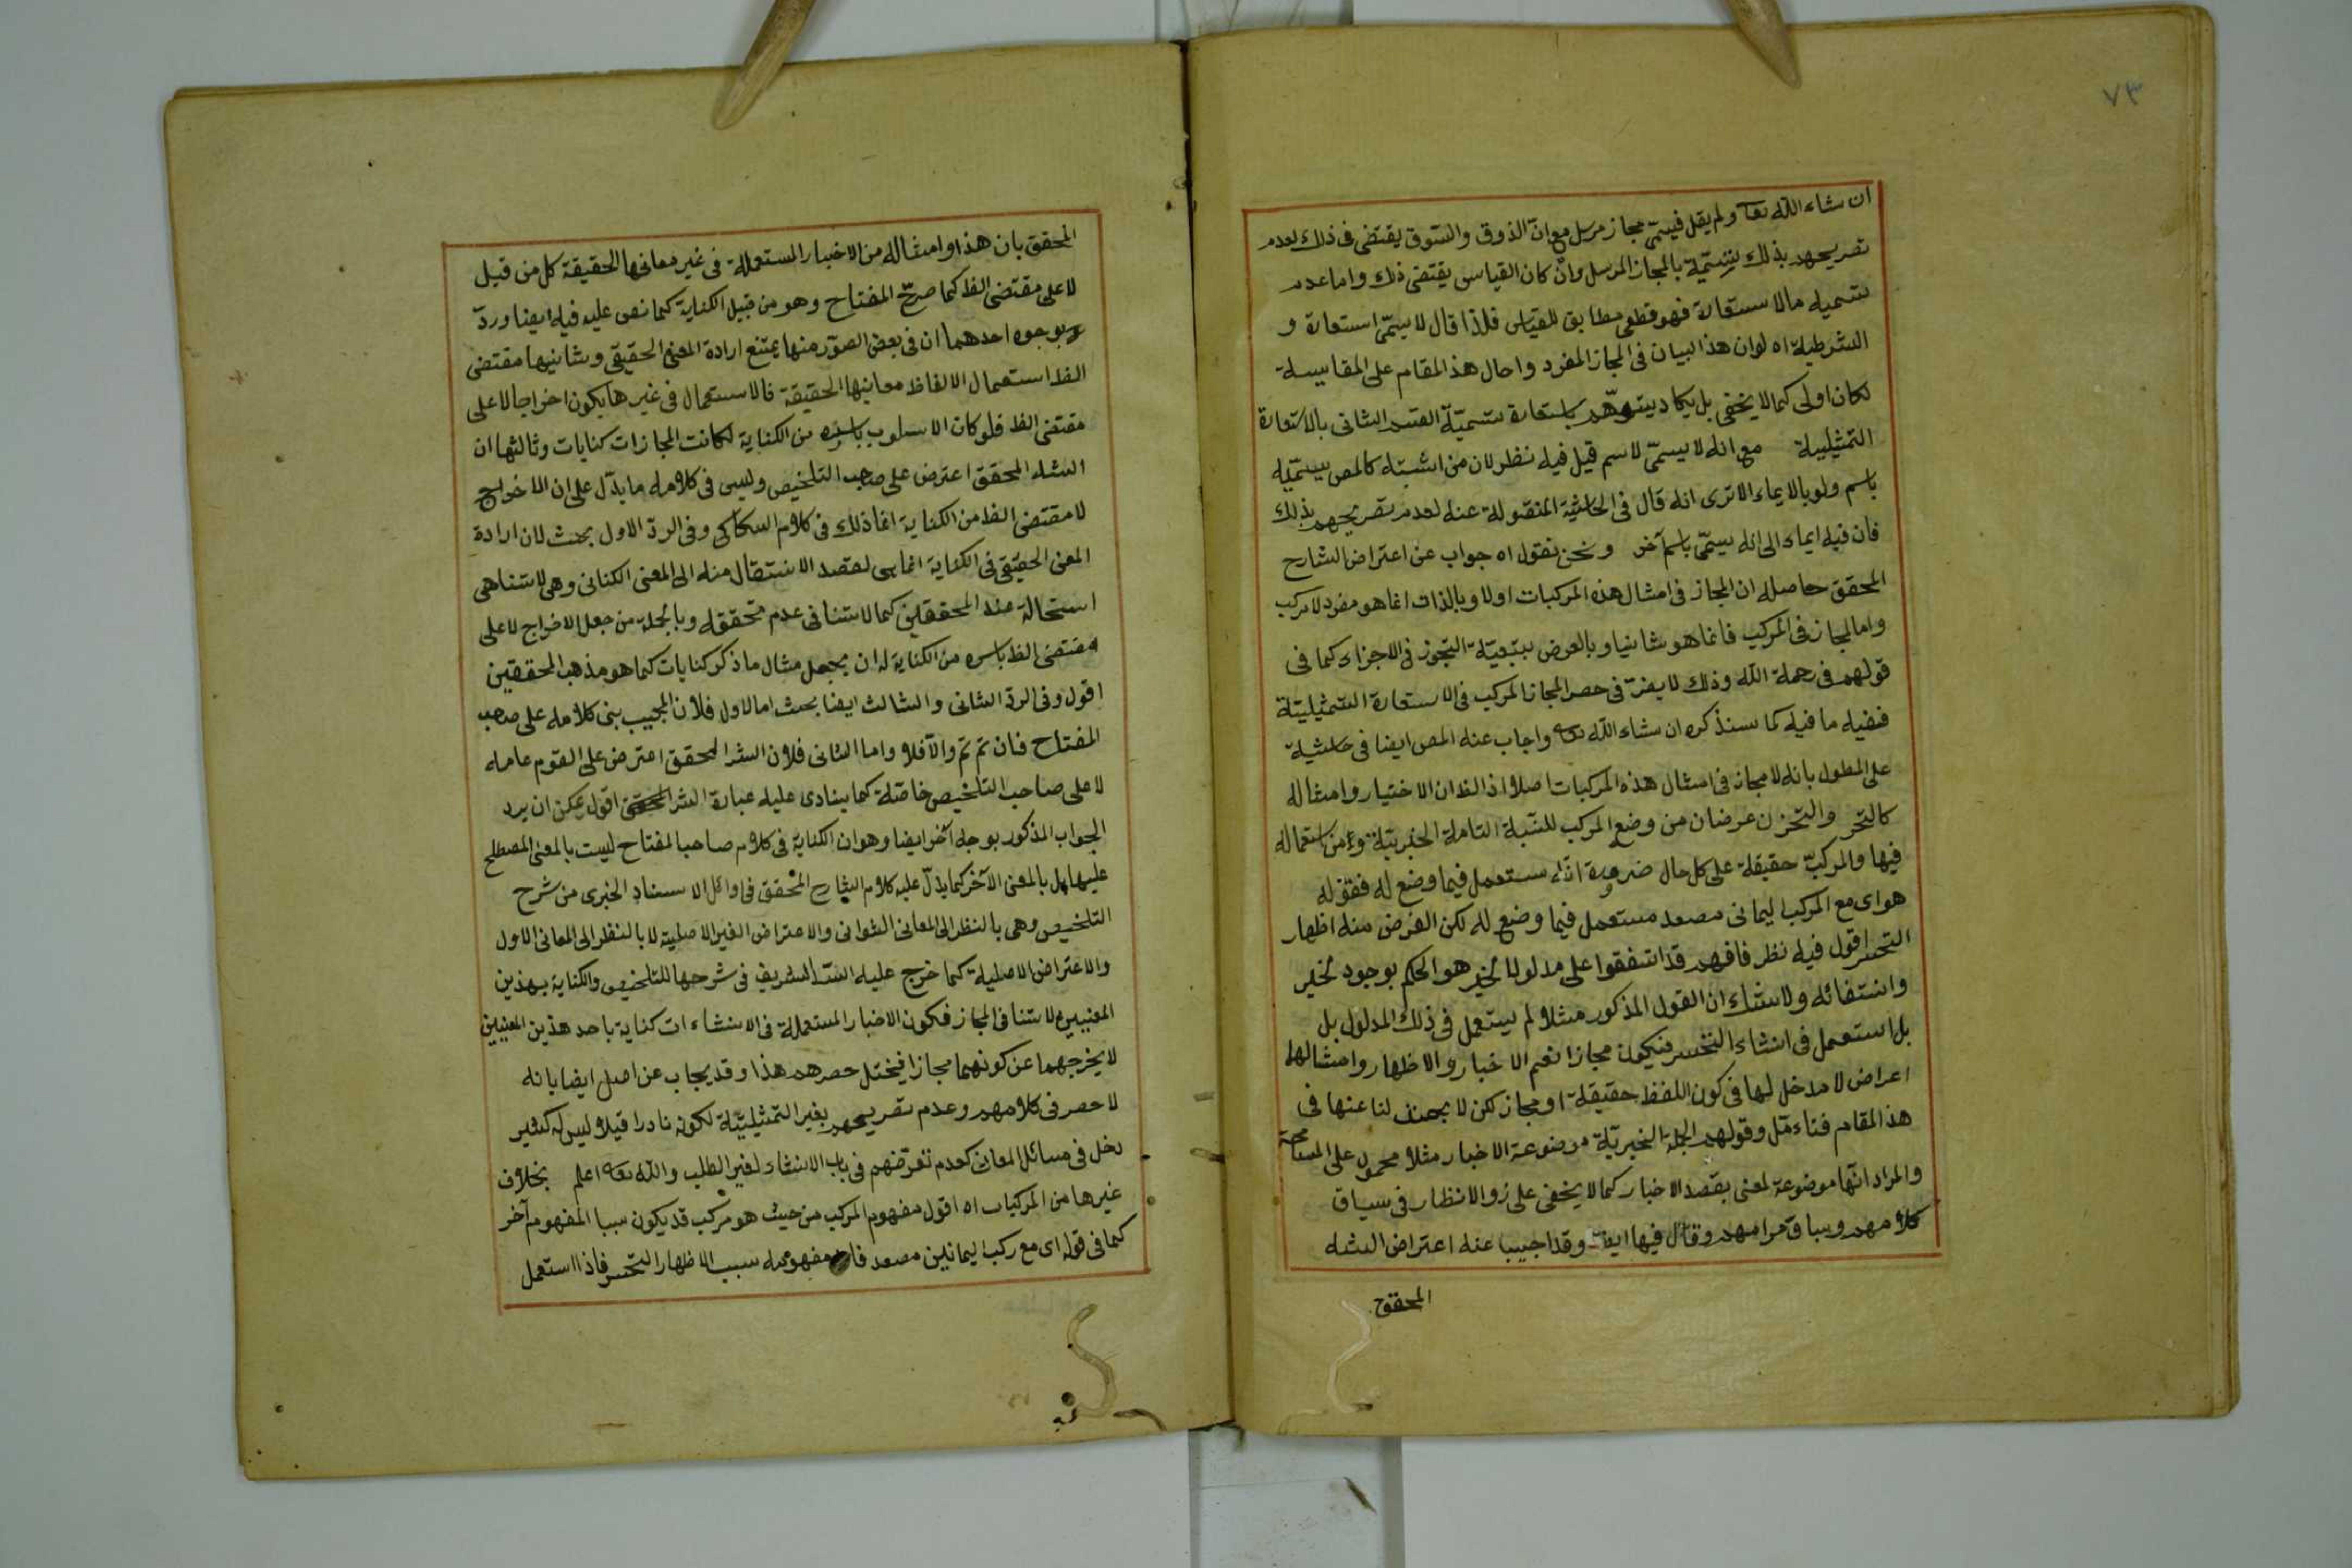 ٧٣
ان شاء الله تعا ولم يقل فيسمّى مجاز مرسل مع انّ الذوق والسّوق يقتضى فى ذلك لعدم
تصريحهم بذلك بتسمّية بالمجاز المرسل وانْ كان القياس يقتضى ذلك واما عدم
تسميه مالاستعارة فهو قطعى مطابق للقياس فلذا قال لا يسمّى استعارة و
الشرطية اه لوان هذا البيان فى المجاز المفرد واحال هذ المقام على المقايسة
لكان اولى كما لا يخفى بل يكاد يتوهّم باستعارة تسميّة القسم الثانى بالاستعارة
التمثيلية مع انه لا يسمّى لاسم قيل فيه نظر لان من اثبته كالمص يسمّيه
باسم ولو بالايماء الا ترى انه قال فى الحاشية المنقولة عنه لعدم تصريحهم بذلك
فان فيه ايماء الى انه يسمّى باسم آخر ونحن نقول اه جواب عن اعتراض الشارح
المحقق حاصله ان المجاز فى امثال هذه المركبات اولا وبالذات انما هو مفرد لا مركب
واما المجاز فى المركب فانما هو ثانيا وبالعرض بتبعيّة التجوز فى الاجزاء كما فى
قولهم فى رحمة الله وذلك لا يضرّ فى حصر المجاز المركب فى الاستعارة التّمثيليّة
ففيه ما فيه كما سنذكره ان شاء الله تعه واجاب عنه المص ايضا فى حاشية
على المطول بانه لا مجاز فى امثال هذه المركبات اصلا اذ الظ ان الاختيار وامثاله
كالتحر والتحزن عرضان من وضع المركب للنسّبة التامة الخبريّة وعن استعماله
فيها والمركبّ حقيقة على كل حال ضرورة انّه ستعمل فيما وضع له فقوله
هواى مع المركب اليمانى مصعد مستعمل فيما وضع له لكن الغرض منه اظهار
التحسر اقول فيه نظر فافهم قد اتفقوا على مدلول الخبر هو الحكم بوجود لخبر
وانتفائه ولا شك ان القول المذكور مثلا لم يستعمل فى ذلك المدلول بل
بل استعمل فى انشاء التحسر فيكون مجازا نعم الاخبار والاظهار وامثالهما
اعراض لا مدخل لها فى كون اللفظ حقيقة او مجاز لكن لا بحث لنا عنها فى
هذ المقام فتاءمّل وقولهم الجملة الخبريّة موضوعة الاخبار مثلا محمول على المسامحة
والمراد انّها موضوعة لمعنى بقصد الاخبار كما لا يخفى على زوالانظار فى سياق
كلامهم وسباق مرامهم وقائل فيها ايضا وقد اجيب عنه اعتراض الشه
المحقق
المحقق بان هذا وامثاله من الاخبار المستعملة فى غير معانيها الحقيقة كل من قبيل
لا على مقتضى الظ كما صرّح المفتاح وهو من قبيل الكناية كما نص عليه فيه ايضا وردّ
بوجوه احدهما ان فى بعض الصّور منها يمتنع ارادة المعنى الحقيقى وثانيها مقتضى
الظ استعمال الالفاظ معانيها الحقيقة فالاستعمال فى غيرها يكون اخراجا لا على
مقتضى الظ فلو كان الاسلوب باسره من الكناية لكانت المجازات كنايات وثالثها ان
الشه المحقق اعترض على صاحب التلخيص وليس فى كلامه ما يدّل على ان الاخراج
لا مقتضى الظ من الكناية انما ذلك فى كلام السكاكى وفى الردّ الاول بحث لان ارادة
المعنى الحقيقى فى الكناية انما هى لقصد الانتقال منه الى المعنى الكنائى وهى لا تنافى
استحالة عند المحققين كما لا تنافى عدم تحققه وبالجملة من جعل الاخراج لا على
مقتضى الظ باسره من الكناية له ان يجعل مثال ما ذكر كنايات كما هو مذهب المحققين
اقول وفى الردّ الثانى والثالث ايضا بحث اما الاول فلان المجيب بنى كلامه على صاحب
المفتاح فان تمّ تمّ والّا فلا واما الثانى فلان الشر المحقق اعترض على القوم عامه
لا على صاحب التلخيص خاصّة كما ينادى عليه عبارة الشر المحقق اقول يمكن ان يرد
الجواب المذكور بوجه آخر ايضا وهو ان الكناية فى كلام صاحب المفتاح ليست بالمعنى المصطلح
عليها بل بالمعنى الآخر كما يدّل عليه كلام الشارح المحقق فى اوائل الاسناد الخبرى من شرح
التلخيص وهى بالنظر الى المعانى الثوانى والاعتراض الغير الاصلية لا بالنظر الى المعانى الاول
والاعتراض الاصلية كما خرج عليه السّد الشريف فى شرحها للتلخيص والكناية بهذين
المعنيين لا تنافى المجاز فكون الاخبار المستعملة فى الانشاءات كناية باحد هذين المعنيين
لا يخرجهما عن كونهما مجازا فيختل حصرهم هذا وقد يجاب عن اصل ايضا بانه
لا حصر فى كلامهم وعدم تصريحهم بغير التمثيليّة لكونه نادرا قيلا ليس له كثير
دخل فى مسائل المعانى كعدم تعرّضهم فى باب الانشاء لغير الطلب والله تعه اعلم بخلاف
غيرها من المركبات اه اقول مفهوم المركب من حيث هو مركب قد يكون سببا المفهوم آخر
كما فى قوله اى مع ركب اليمانين مصعد فان مفهومه سبب الاظهار التحسر فاذا استعمل